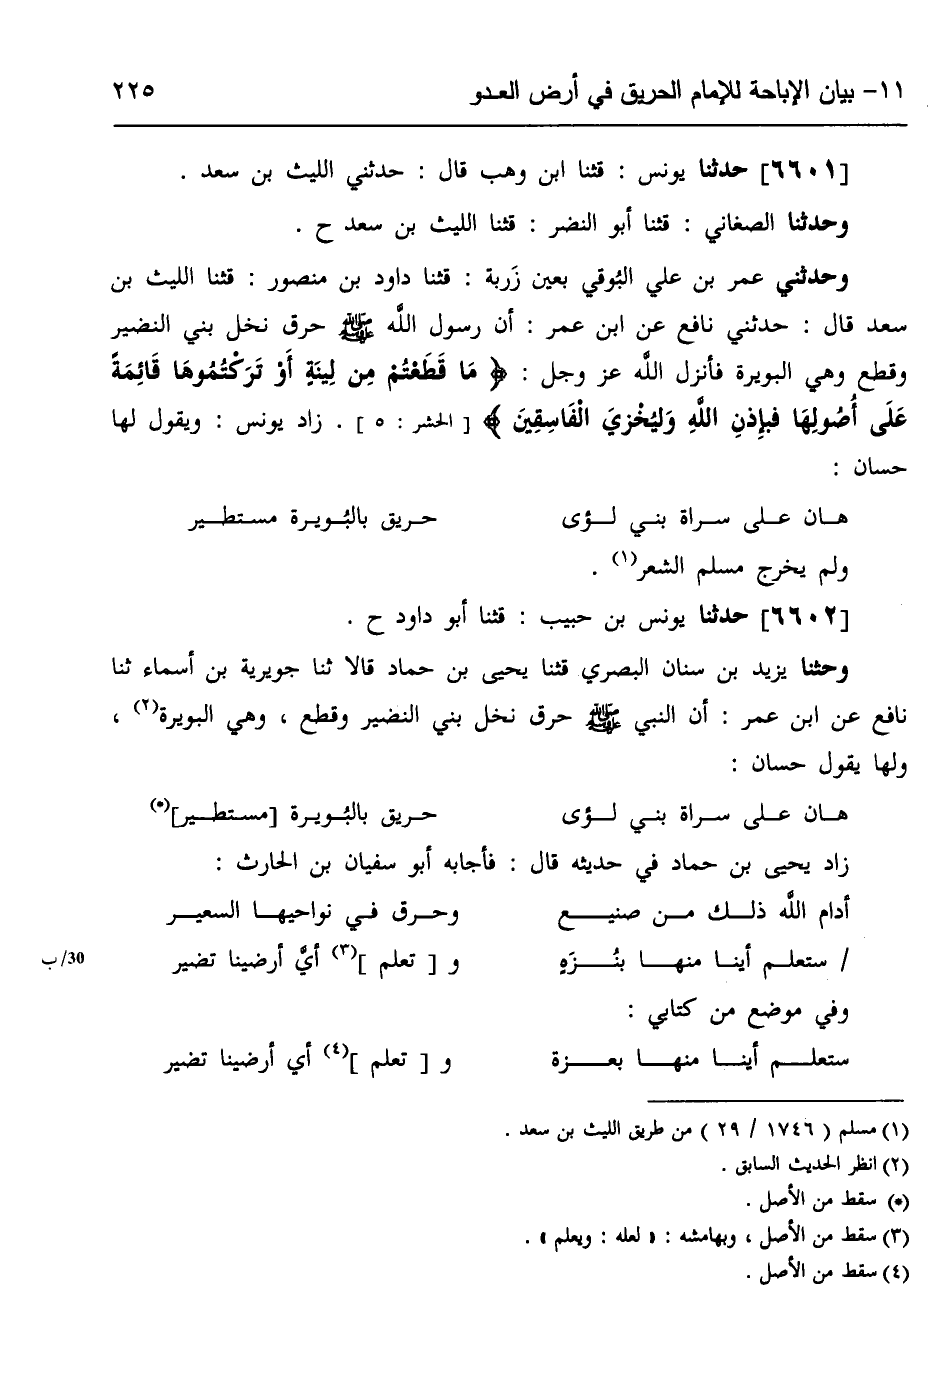 ١١- بيان الإباحة للإمام الحريق في أرض العدو ٢٢٥
[٦٦٠١] حدثنا يونس : قثنا ابن وهب قال : حدثني الليث بن سعد .
وحدثنا الصغاني : قثنا أبو النضر : قثنا الليث بن سعد ح .
وحدثني عمر بن علي البُوقي بعين زَربة : قثنا داود بن منصور : قثنا الليث بن
سعد قال : حدثني نافع عن ابن عمر : أن رسول اللَّه ﷺ حرق نخل بني النضير
وقطع وهي البويرة فأنزل اللَّه عز وجل : ﴿ مَا قَطَعْتُمْ مِن لِينَةٍ أَوْ تَرَكْتُمُوهَا قَائِمَةً
عَلَى أُصُولِهَا فَبِإِذنِ اللَّهِ وَلِيُخْزِيَ الْفَاسِقِينَ ﴾ [ الحشر : ٥ ] . زاد يونس : ويقول لها
حسان :
هـان عـلى سـراة بنـي لـؤى حـريق بالبُـويـرة مسـتطـير
ولم يخرج مسلم الشعر(١) .
[٦٦٠٢] حدثنا يونس بن حبيب : قثنا أبو داود ح .
وحثنا يزيد بن سنان البصري قثنا يحيى بن حماد قالا ثنا جويرية بن أسماء ثنا
نافع عن ابن عمر : أن النبي ﷺ حرق نخل بني النضير وقطع ، وهي البويرة(٢) ،
ولها يقول حسان :
هـان عـلى سـراة بنـي لـؤى حـريق بالبُـويـرة [مسـتطـير](*)
زاد يحيى بن حماد في حديثه قال : فأجابه أبو سفيان بن الحارث :
أدام اللَّه ذلـك مـن صنيـع وحـرق فـي نواحيهـا السعيـر
/ ستعلـم أينـا منهـا بنُـزَهٍ و [ تعلم ](٣) أيَّ أرضينا تضير
30/ب
وفي موضع من كتابي :
ستعلـم أينـا منهـا بعـزة و [ تعلم ](٤) أي أرضينا تضير
(١) مسلم ( ١٧٤٦ / ٢٩ ) من طريق الليث بن سعد .
(٢) انظر الحديث السابق .
(*) سقط من الأصل .
(٣) سقط من الأصل ، وبهامشه : « لعله : ويعلم » .
(٤) سقط من الأصل .